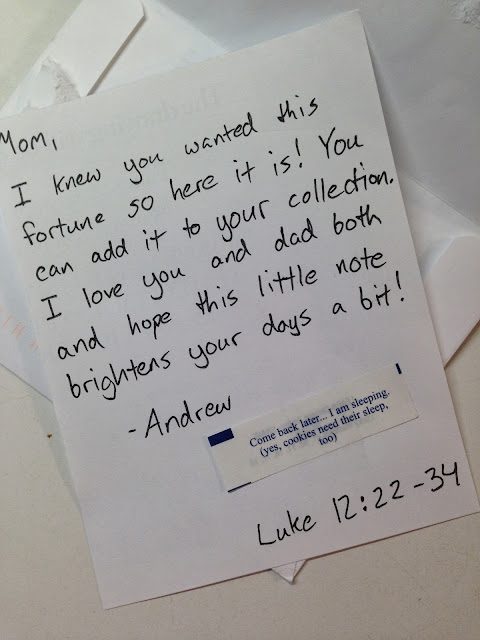 Mom,
I knew you wanted this
fortune so here it is! You
can add it to your collection.
I love you and dad both
and hope this little note
brightens your days a bit!
-Andrew
Come back later... I am sleeping.
(yes, cookies need their sleep,
too)
Luke 12:22-34